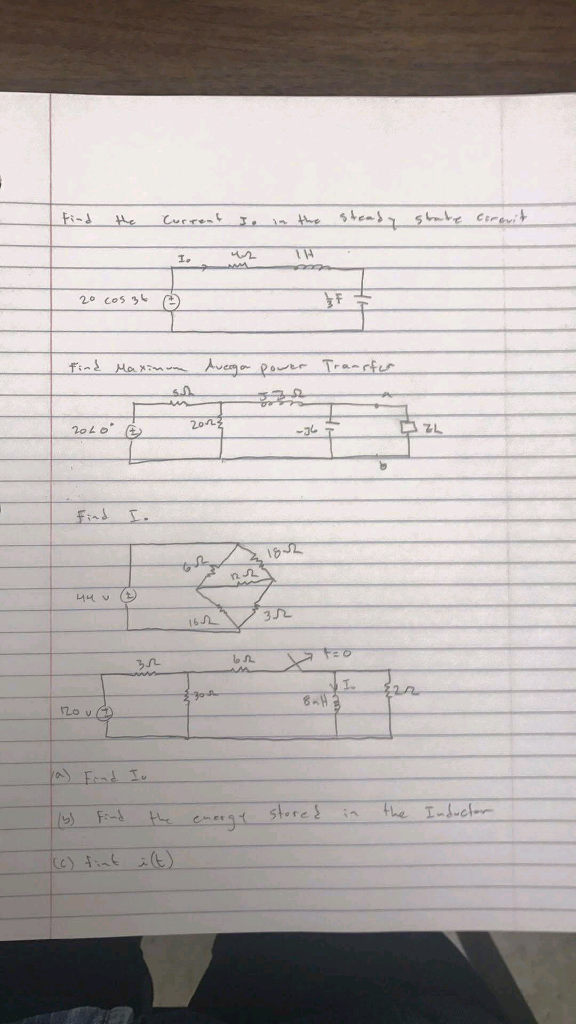 Find the current I₀ in the steady state circuit
I₀ 4Ω 1H
20 cos 3t ± 1/3 F
Find Maximum Avegn power Transfer
5Ω J3Ω a
20∠0° ± 20Ω -J6 ZL
b
Find I₀
6Ω 18Ω
12Ω
44 v ±
16Ω 3Ω
3Ω 6Ω t=0
30Ω 8mH I₀ 2Ω
120 v
(a) Find I₀
(b) Find the energy stored in the Inductor
(c) fint i(t)